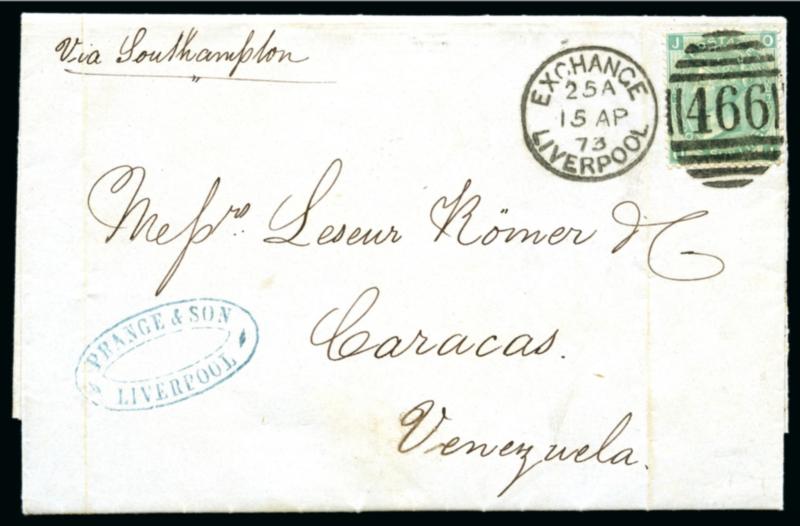 Via Southampton
EXCHANGE
25A
15 AP
73
LIVERPOOL
J O
466
Messrs. Leseur Römer & C
Caracas.
Venezuela.
PRANGE & SON
LIVERPOOL